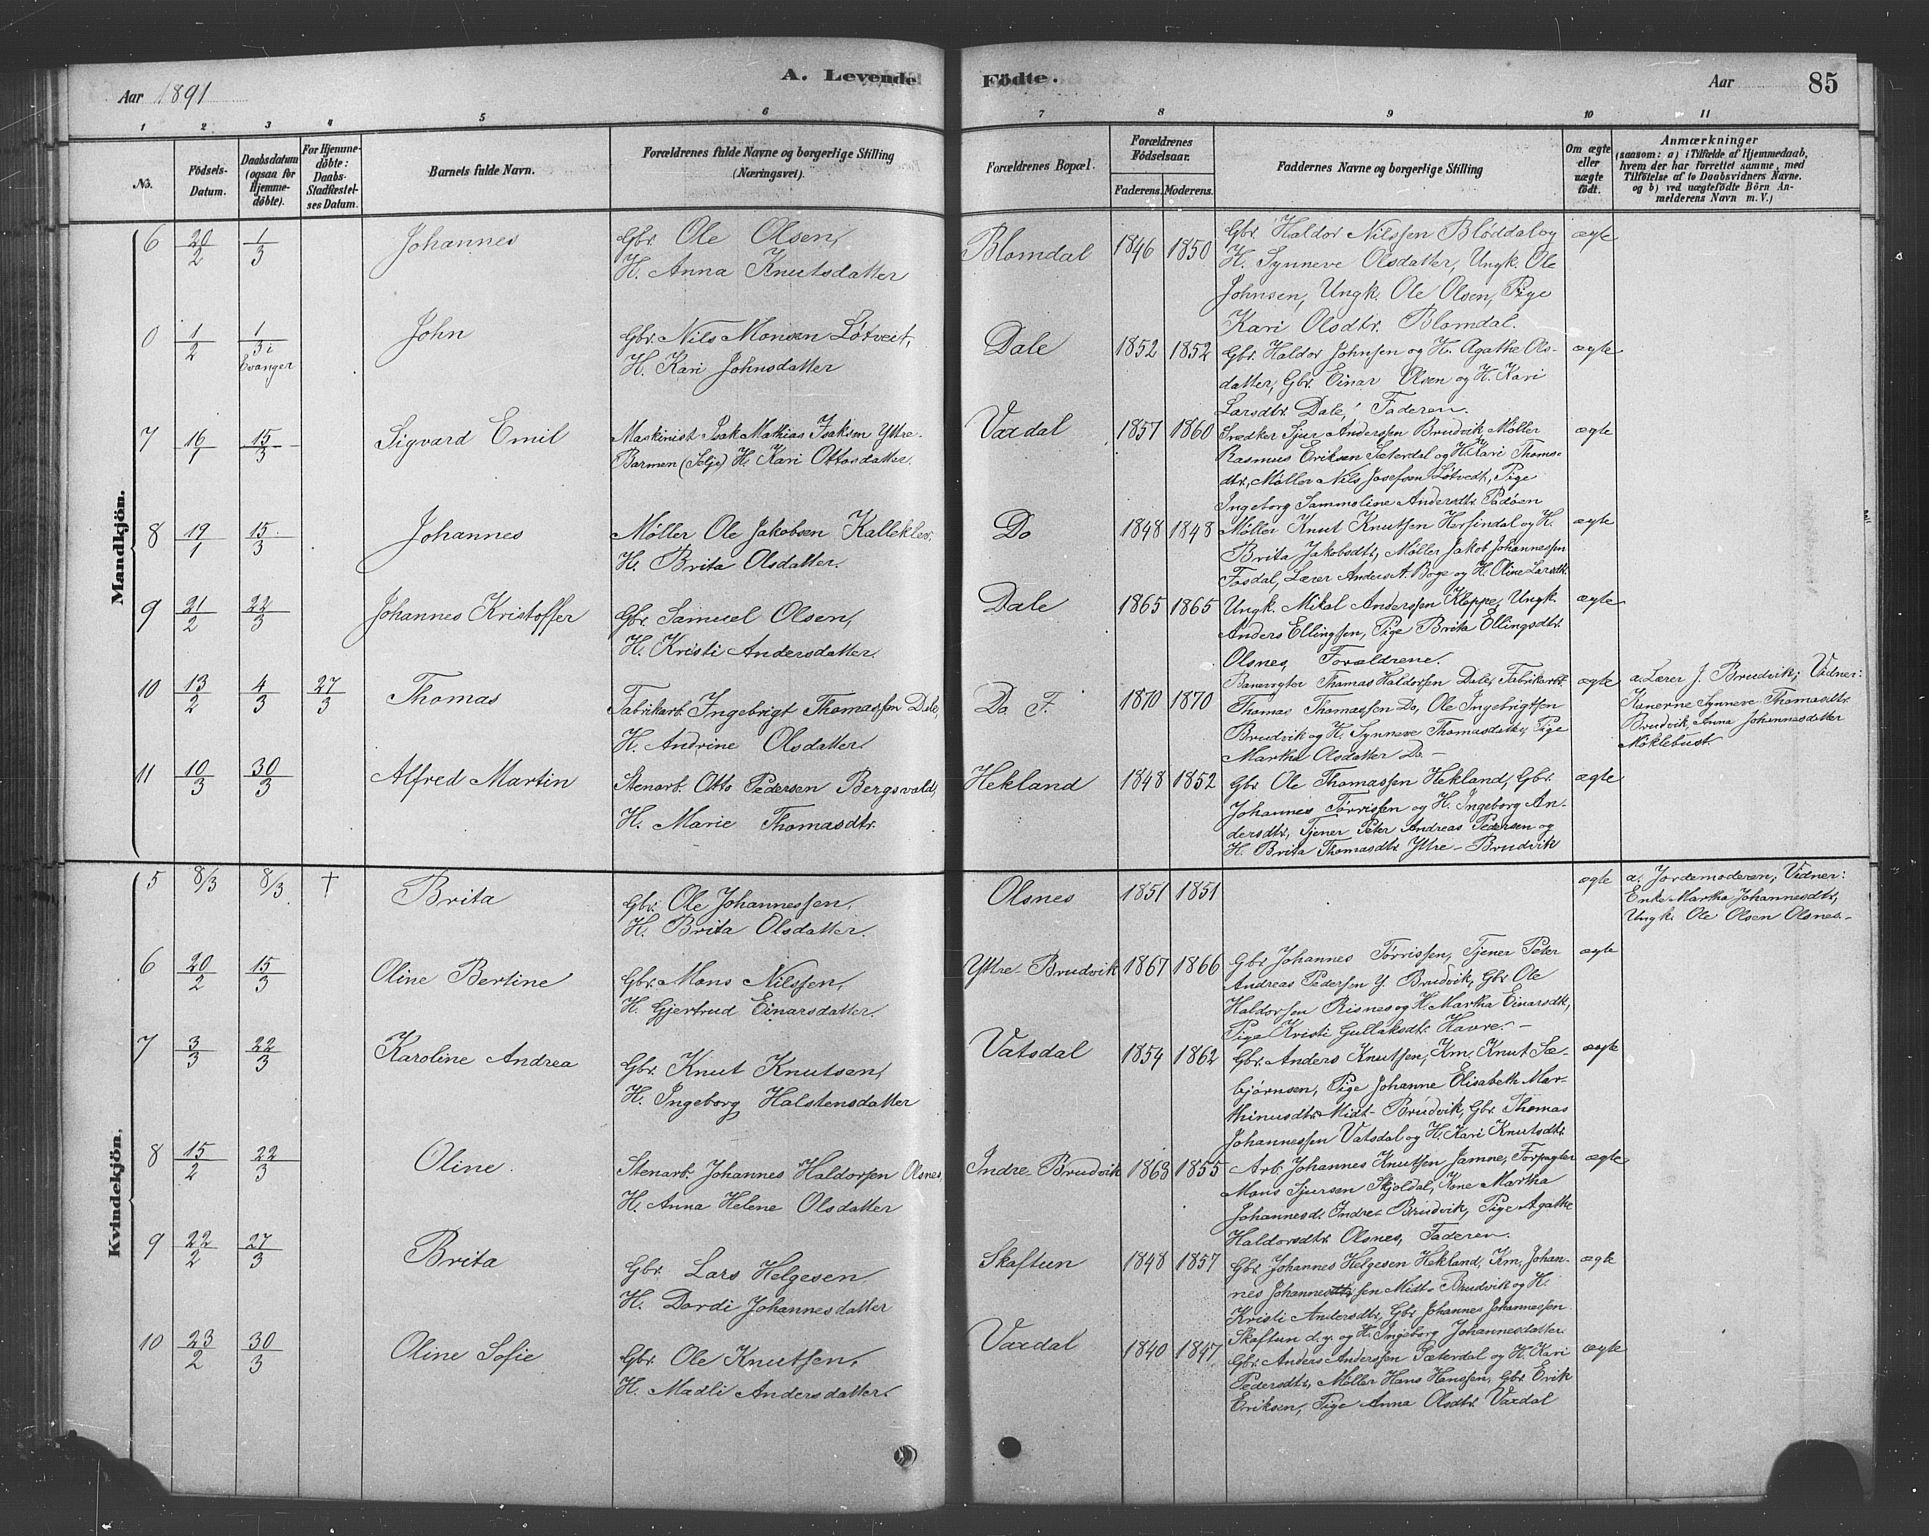 Aar 1891
A. Levende
Födte.
Aar
85
1 2 3 4 5 6 7 8 9 10 11
No.
Födsels-Datum.
Daabsdatum (ogsaa for Hjemmedöbte).
For Hjemmedöbte: Daabs-Stadfæstelses Datum.
Barnets fulde Navn.
Forældrenes fulde Navne og borgerlige Stilling (Næringsvei).
Forældrenes Bopæl.
Forældrenes Födselsaar.
Faderens. Moderens.
Faddernes Navne og borgerlige Stilling
Om ægte eller uægte födt.
Anmærkninger
(saasom: a) i Tilfælde af Hjemmedaab,
hvem der har forrettet samme, med
Tilföielse af to Daabsvidners Navne,
og b) ved uægtefödte Börn An-
melderens Navn m. V.)
Mandkjön.
6 20/2 1/3 Johannes
Gbr. Ole Olsen,
H. Anna Knutsdatter
Blomdal 1846 1850
Gbr. Haldor Nilssen Bløddal og
H. Synneve Olsdatter, Ungk. Ole
Johnsen, Ungk. Ole Olsen, Pige
Kari Olsdtr. Blomdal.
ægte
0 1/2 1/3 i Evanger John
Gbr. Nils Monsen Løtveit,
H. Kari Johnsdatter
Dale 1852 1852
Gbr. Haldor Johnsen og H. Agathe Ols-
datter, Gbr. Einar Olsen og H. Kari
Larsdtr. Dale, Faderen.
ægte
7 16/1 15/3 Sigvard Emil
Maskinist Isak Mathias Isaksen Yttre-
Barmen (Selje) H. Kari Ottosdatter.
Vaxdal 1857 1860
Snedker Sjur Anderssen Brudvik Møller
Rasmus Eriksen Sæterdal og H. Kari Thoms-
dtr, Møller Nils Josefsen Løtvedt, Pige
Ingeborg Sammoline Andersdtr. Padøen
ægte
8 19/1 15/3 Johannes
Møller Ole Jakobsen Kalleklev.
H. Brita Olsdatter.
Do 1848 1848
Møller Knut Knutsen Herfindal og H.
Brita Jakobsdtr, Møller Jakob Johannessen
Fosdal, Lærer Anders A. Boge og H. Oline Larsdtr.
ægte
9 21/2 22/3 Johannes Kristoffer
Gbr. Samuel Olsen,
H. Kristi Andersdatter.
Dale 1865 1865
Ungk. Mikal Anderssen Kleppe, Ungk.
Anders Ellingsen, Pige Brita Ellingsdtr.
Olsnes, Forældrene.
ægte
10 13/2 4/3 27/3 Thomas
Fabrikarb. Ingebrigt Thomassen Dale,
H. Andrine Olsdatter.
Do F. 1870 1870
Banevogter Thomas Haldorsen Dale, Fabrikarb.
Thomas Thomassen Do, Ole Ingebrigtsen
Brudvik og H. Synneve Thomasdatter, Pige
Martha Olsdatter Do -
ægte
a. Lærer J. Brudvik; Vidner:
Konerne Synneve Thomasdtr.
Brudvik Anna Johannesdatter
Nøklebust.
11 10/3 30/3 Alfred Martin
Stenarb. Otto Pedersen Bergsvald,
H. Marie Thomasdtr.
Hekland 1848 1852
Gbr. Ole Thomassen Hekland, Gbr.
Johannes Tørrissen og H. Ingeborg An-
dersdtr, Tjener Peter Andreas Pedersen og
H. Brita Thomasdtr. Yttre-Brudvik
ægte
Kvindekjön.
5 8/3 8/3 † Brita
Gbr. Ole Johannessen,
H. Brita Olsdatter.
Olsnes 1851 1851
ægte
a. Jordemoderen; Vidner:
Enke Martha Johannesdtr,
Ungk. Ole Olsen Olsnes -
6 20/2 15/3 Oline Bertine
Gbr. Mons Nilssen,
H. Gjertrud Einarsdatter.
Yttre-Brudvik 1867 1866
Gbr. Johannes Tørrissen, Tjener Peter
Andreas Pedersen Y. Brudvik, Gbr. Ole
Haldorsen Risnes og H. Martha Einarsdtr,
Pige Kristi Gullaksdtr. Havre. -
ægte
7 3/3 22/3 Karoline Andrea
Gbr. Knut Knutsen,
H. Ingeborg Halstensdatter
Vatsdal 1854 1862
Gbr. Anders Knutsen, Km. Knut Sæ-
bjørnsen, Pige Johanne Elisabeth Mar-
thinusdtr. Midt-Brudvik, Gbr. Thomas
Johannessen Vatsdal og H. Kari Knutsdtr.
ægte
8 15/2 22/3 Oline.
Stenarb. Johannes Haldorsen Olsnes,
H. Anna Helene Olsdatter
Indre-Brudvik 1863 1855
Arb. Johannes Knutsen Jamne, Forpagter
Mons Sjursen Skjoldal, Kone Martha
Johannesd. Indre-Brudvik, Pige Agathe
Haldorsdtr. Olsnes, Faderen.
ægte
9 22/2 27/3 Brita
Gbr. Lars Helgesen
H. Dordi Johannesdatter
Skaftun 1848 1857
Gbr. Johannes Helgesen Hekland, Km. Johan-
nes Johannessen Midt-Brudvik og H.
Kristi Andersdtr, Gbr. Johannes Johannessen
Skaftun d.y. og H. Ingeborg Johannesdatter.
ægte
10 23/2 30/3 Oline Sofie
Gbr. Ole Knutsen,
H. Madli Andersdatter.
Vaxdal 1840 1847
Gbr. Anders Anderssen Sæterdal og H. Kari
Pedersdtr, Møller Hans Hanssen, Gbr. Erik
Eriksen, Pige Anna Olsdtr. Vaxdal
ægte